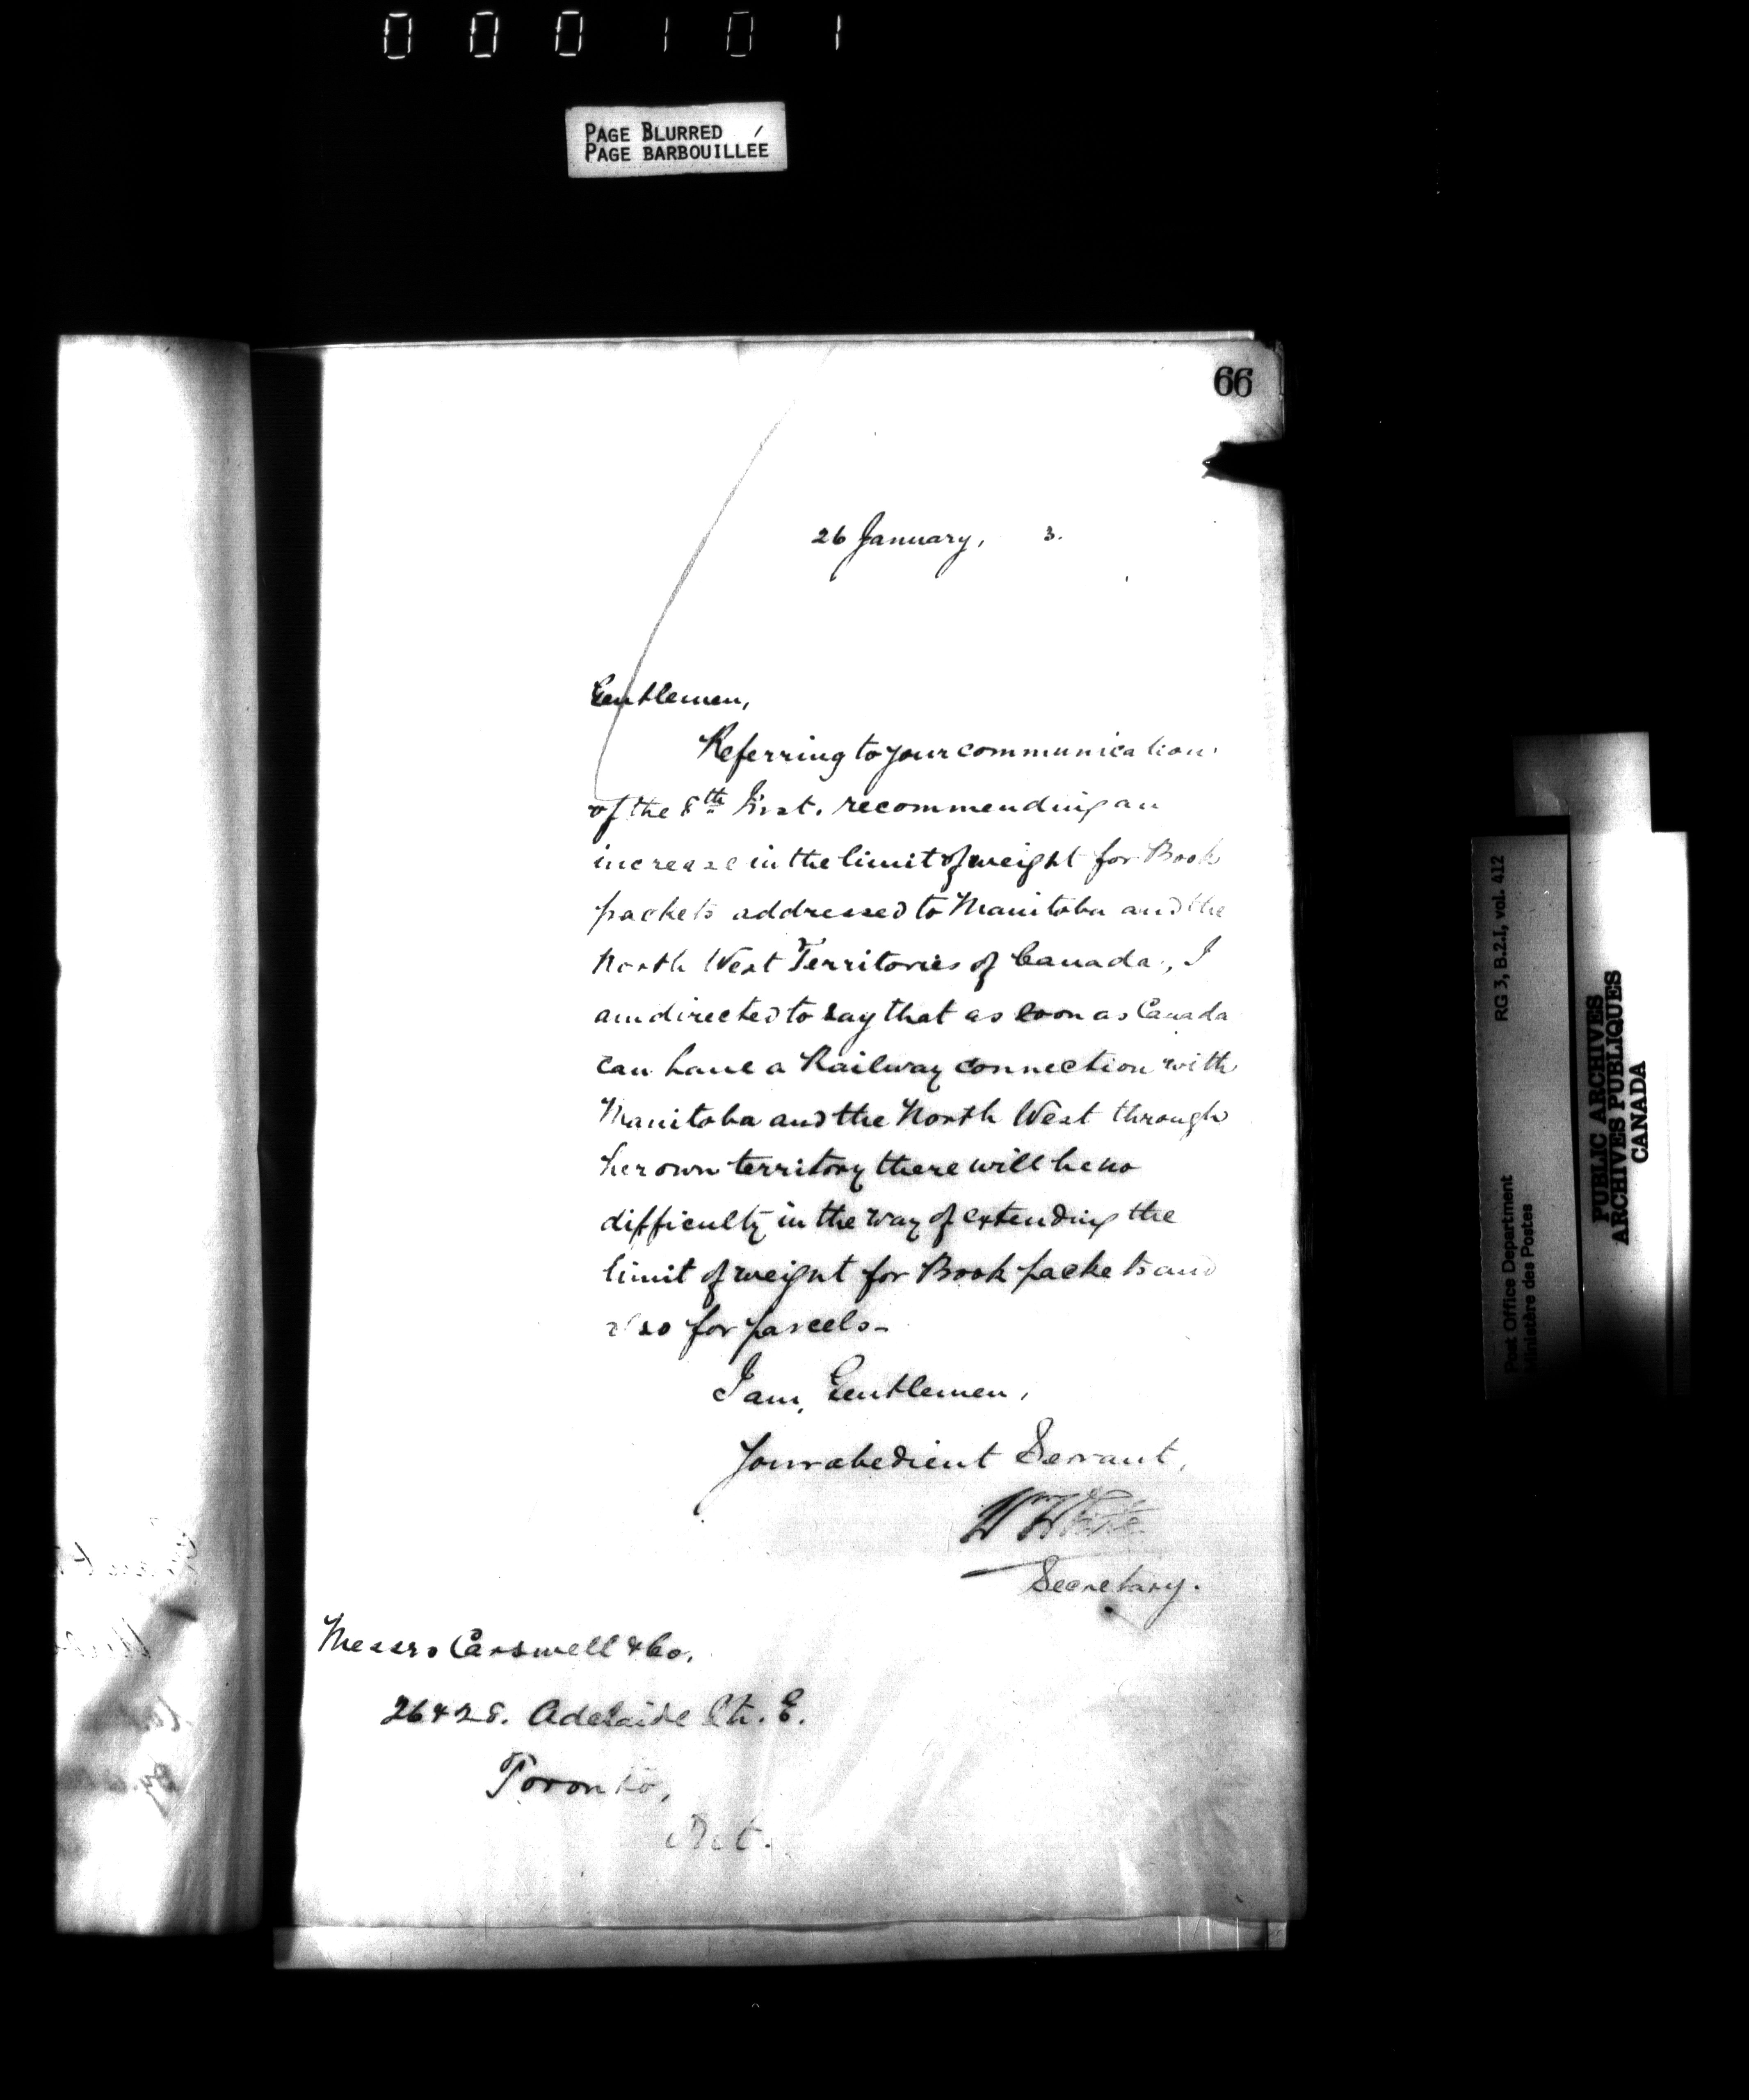 000101
PAGE BLURRED
PAGE BARBOUILLÉE
66
26 January, 3.
Gentlemen,
Referring to your communication
of the 8th Inst. recommending an
increase in the limit of weight for Book
packets addressed to Manitoba and the
North West Territories of Canada, I
am directed to say that as soon as Canada
can have a Railway connection with
Manitoba and the North West through
her own territory there will be no
difficulty in the way of extending the
limit of weight for Book packets and
also for parcels-
I am, Gentlemen,
Your obedient Servant,
W White
Secretary.
Messrs Carswell & Co.
26 & 28. Adelaide St. E.
Toronto,
Ont.
RG 3, B.2.I, vol. 412
Post Office Department
Ministère des Postes
PUBLIC ARCHIVES
ARCHIVES PUBLIQUES
CANADA